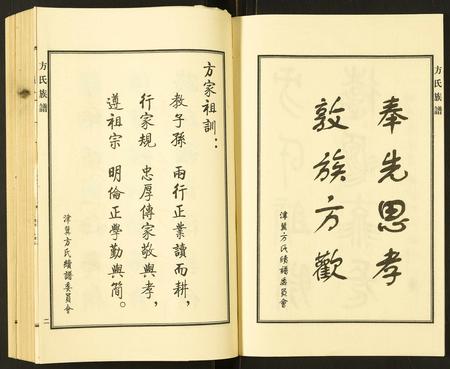 方氏族譜
奉先思孝
敦族方歡
津冀方氏續譜委員會
方家祖訓：
教子孫 兩行正業讀而耕，
行家規 忠厚傳家敬與孝，
遵祖宗 明倫正學勤與簡。
津冀方氏續譜委員會
方氏族譜
二